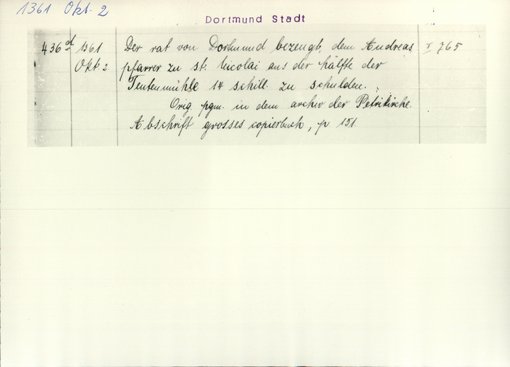 1361 Okt. 2
Dortmund Stadt
436d 1361 Der rat von Dortmund bezeugt, dem Andreas I 765
Okt 2. pfarrer zu st. Nicolai aus der hälfte der
Teutenmühle 14 schill. zu schulden.
Orig. pgm. in dem archiv der Petrikirche.
Abschrift grosses copierbuch, p. 151.